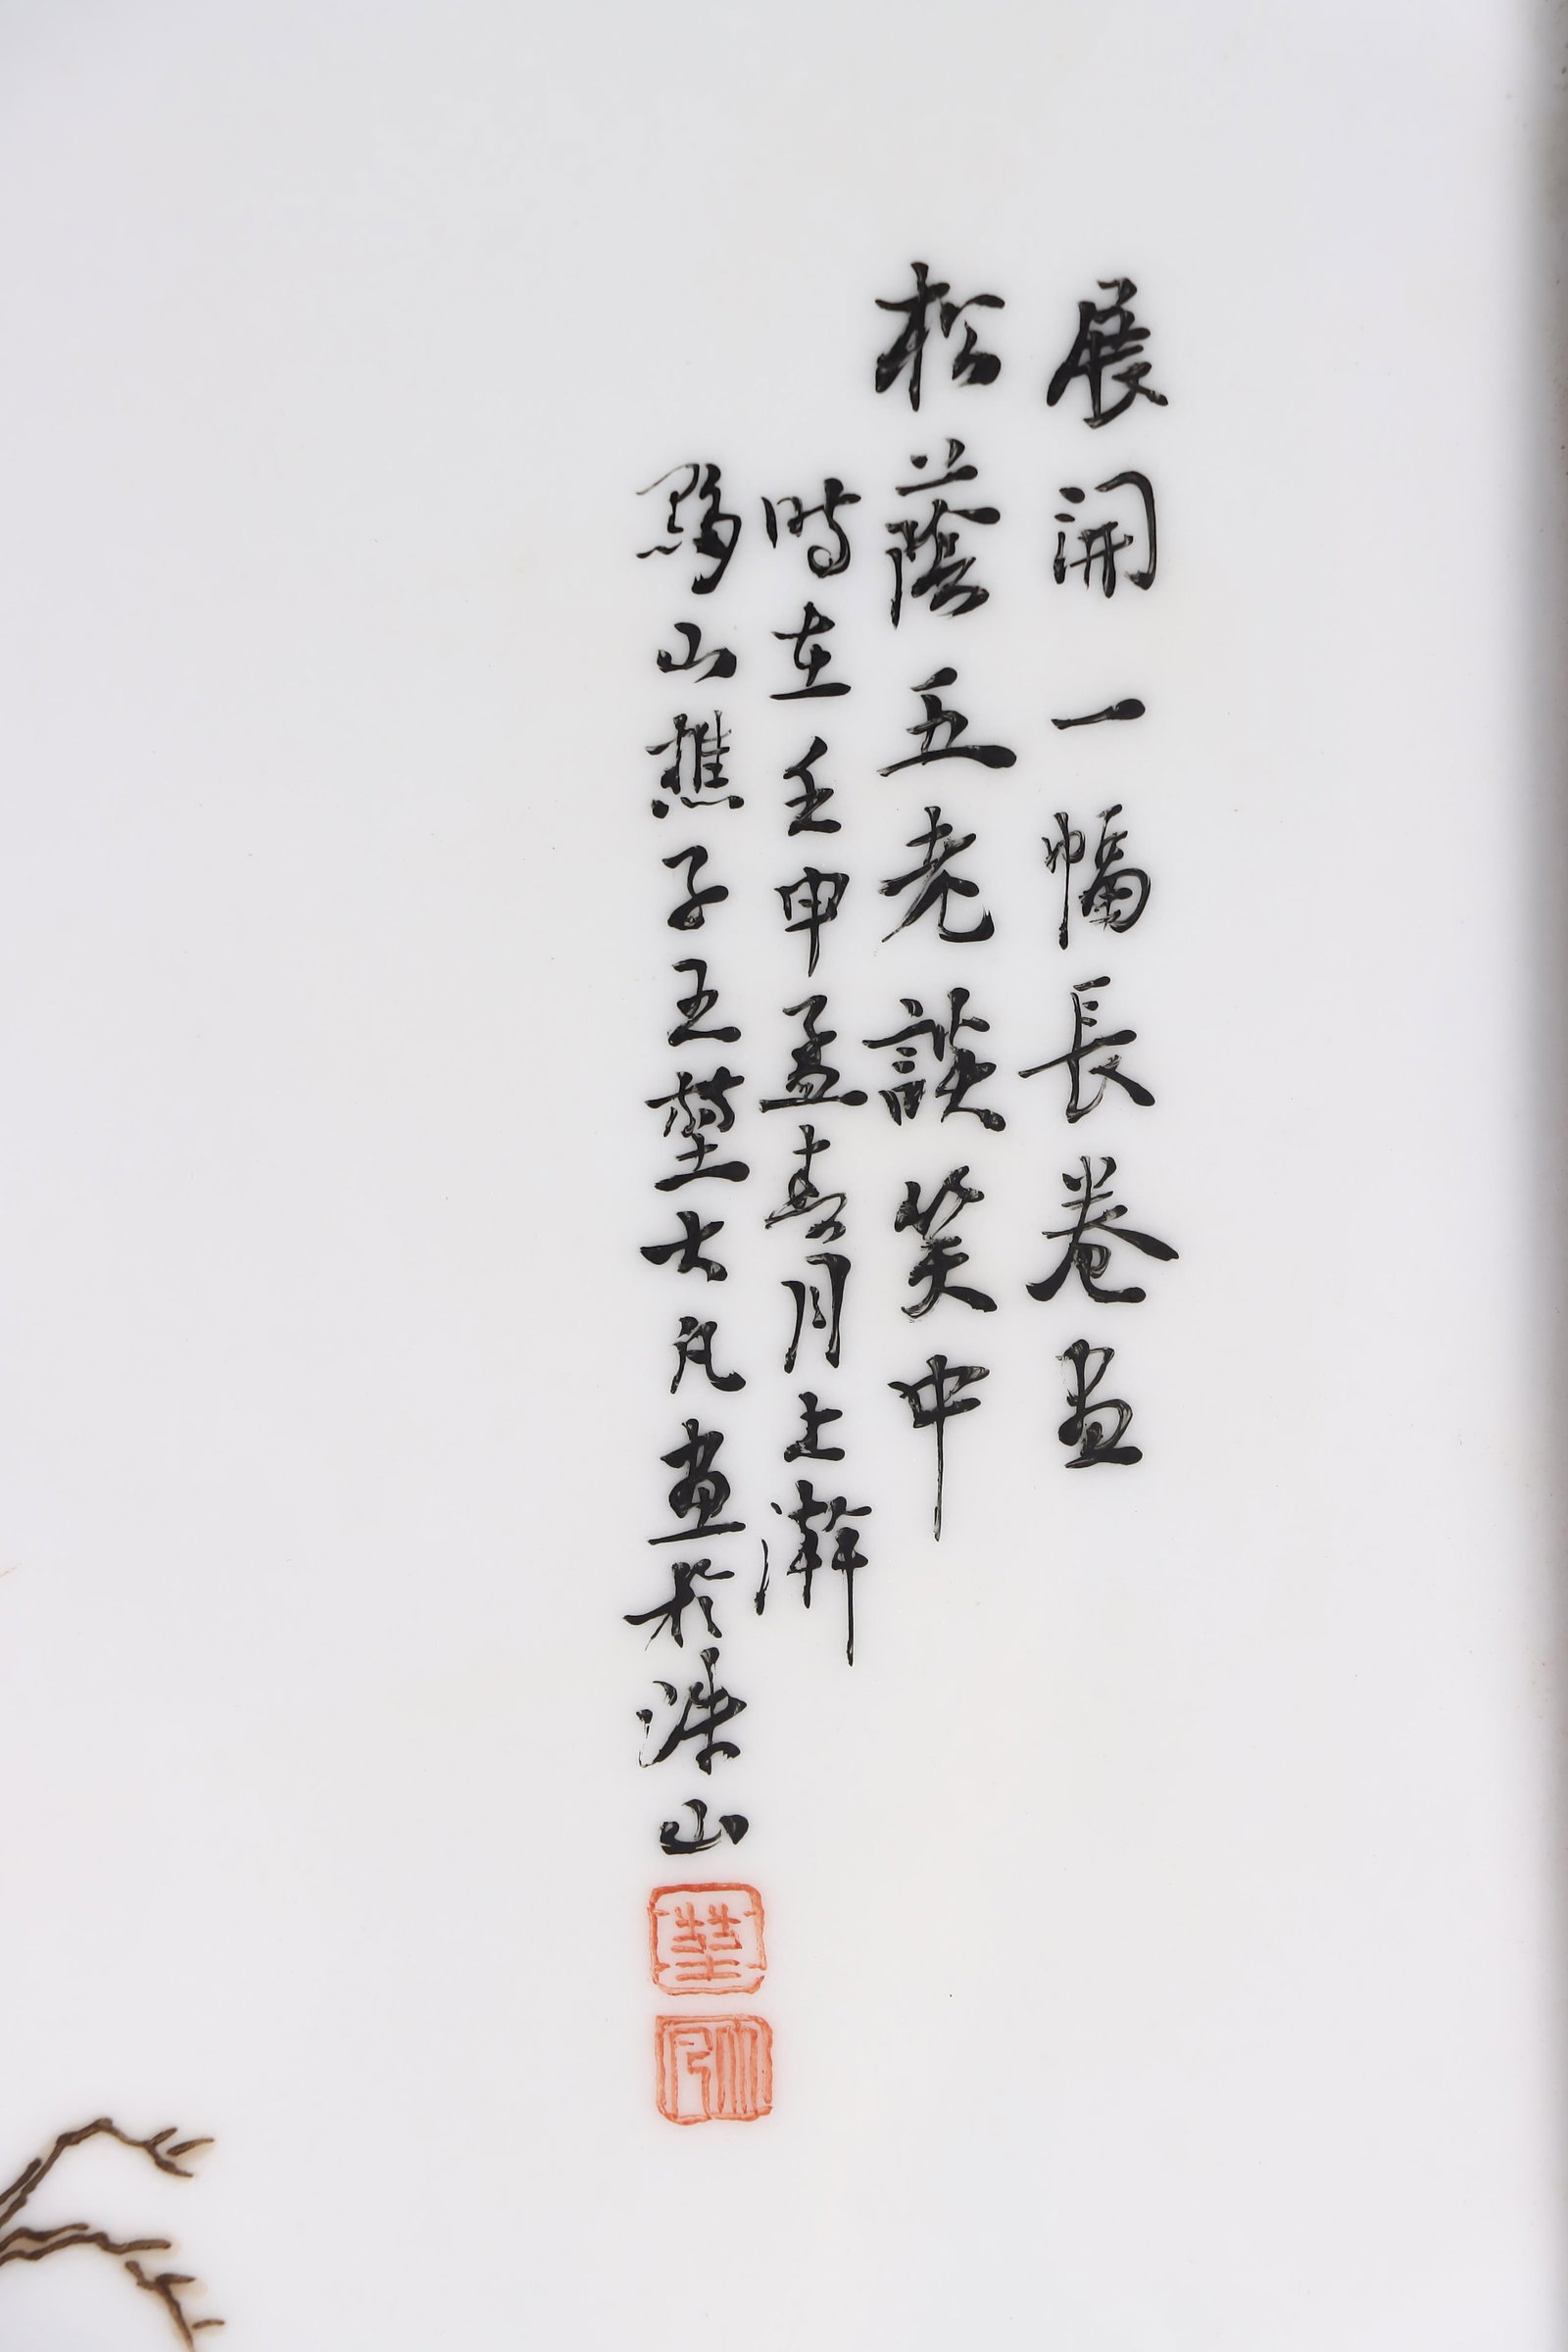 展開一幅長卷画
松蔭五老談笑中
時在壬申孟春月上澣
黟山樵子王堃大凡畫於珠山